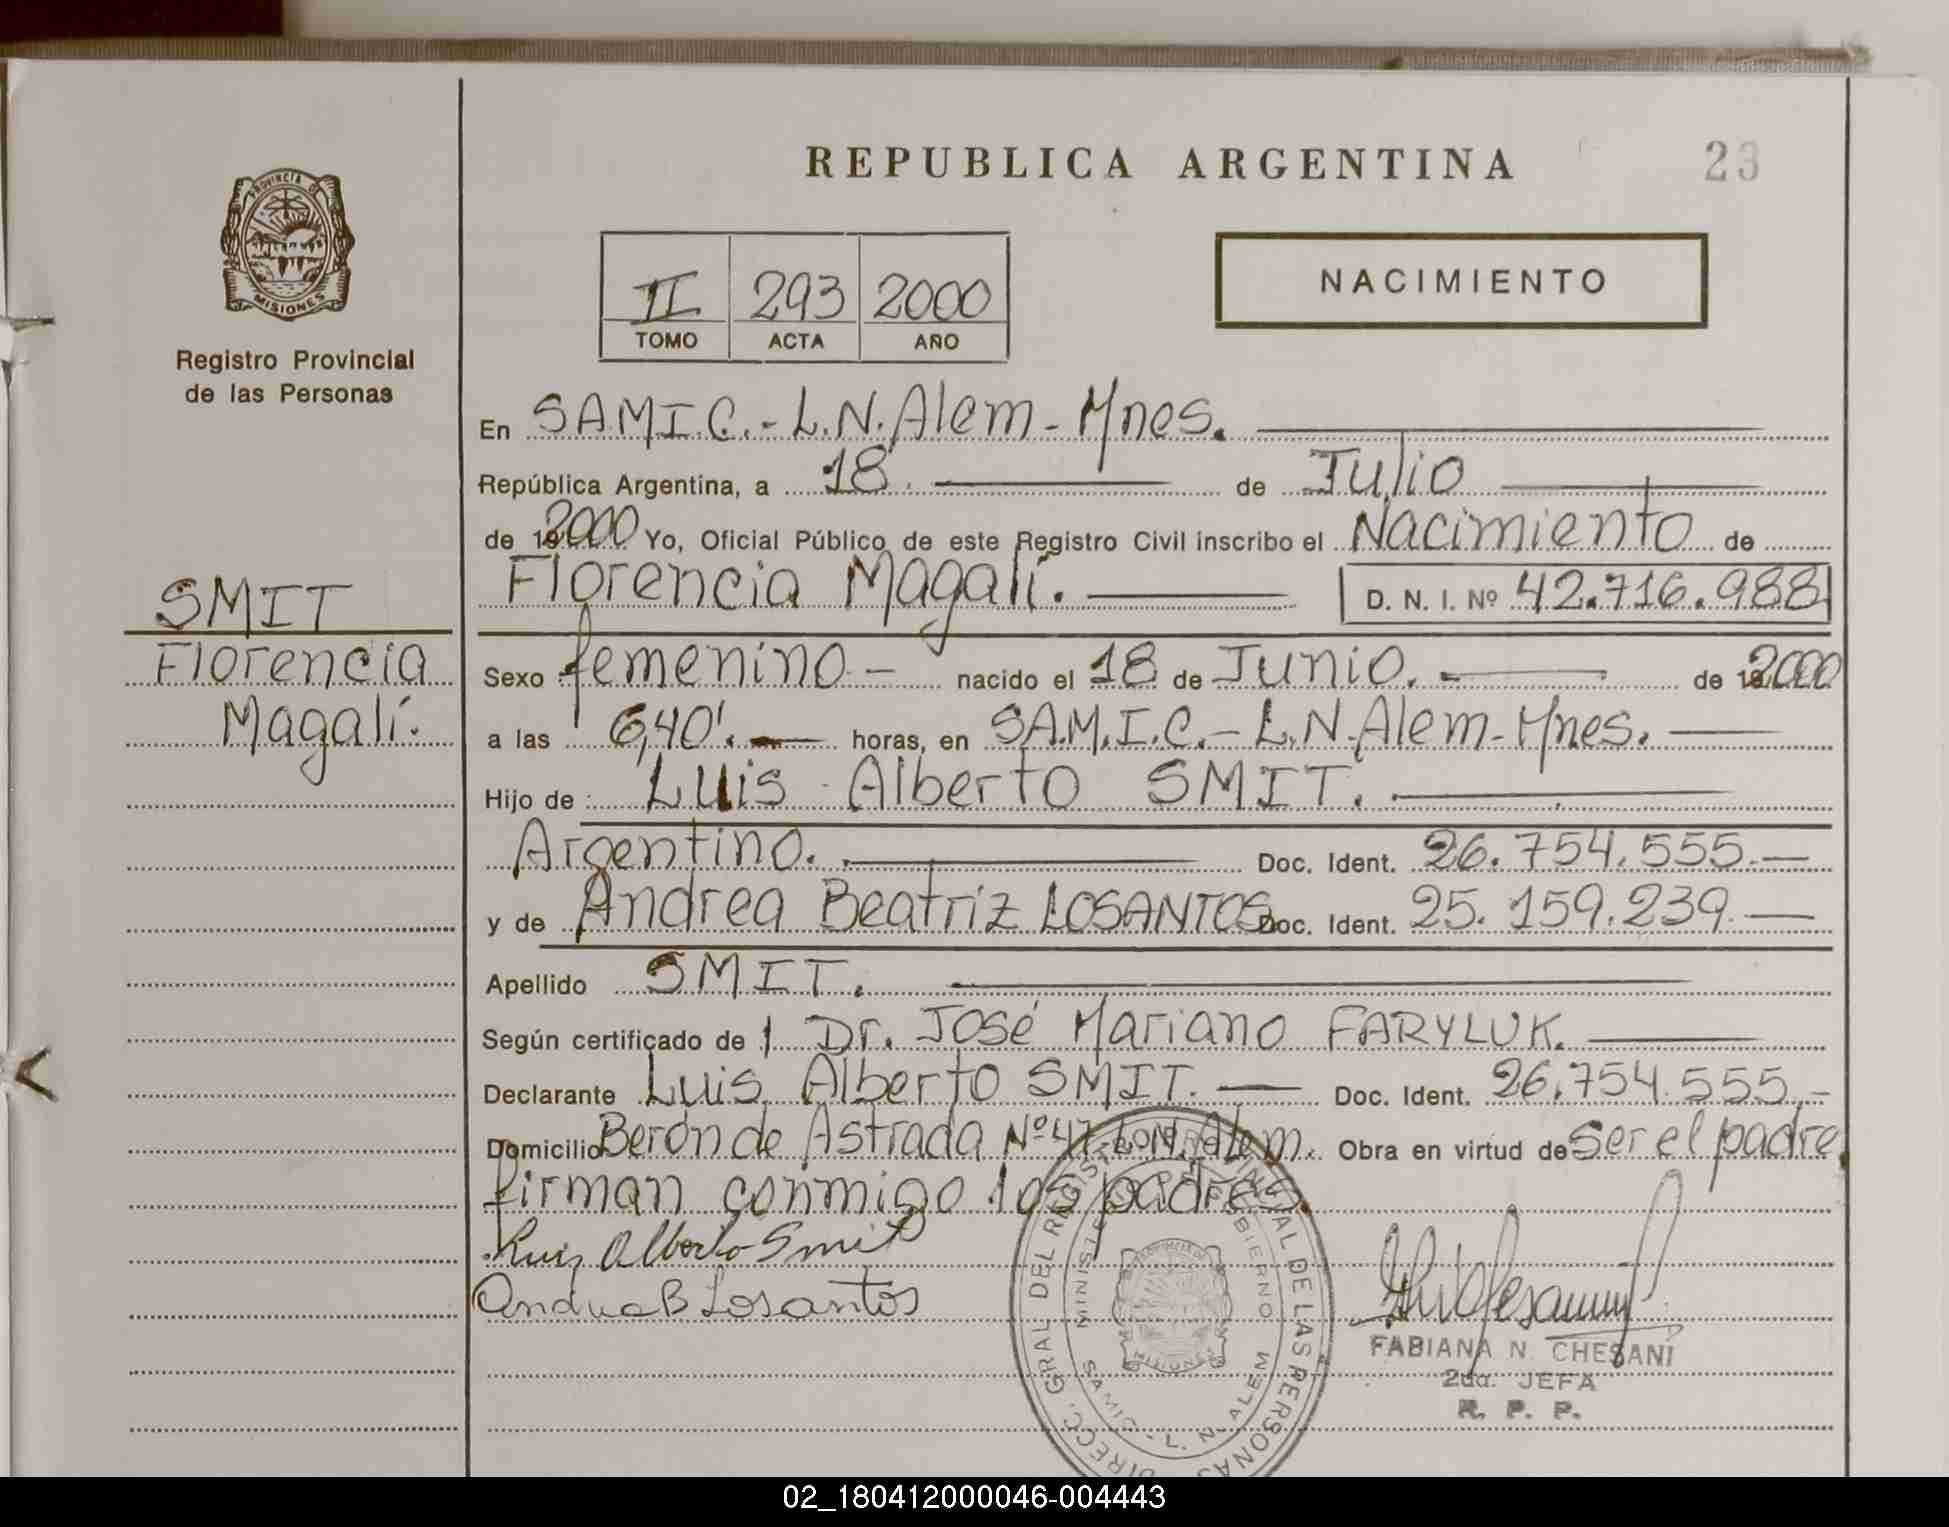 REPUBLICA ARGENTINA
23
PROVINCIA DE
MISIONES
Registro Provincial
de las Personas
II 293 2000
TOMO ACTA AÑO
NACIMIENTO
En S.A.M.I.C.- L.N.Alem - Mnes.
República Argentina, a 18 de Julio
de 2000 Yo, Oficial Público de este Registro Civil inscribo el Nacimiento de
Florencia Magalí. D. N. I. Nº 42.716.988
SMIT
Florencia
Magalí.
Sexo femenino - nacido el 18 de Junio. de 2000
a las 6,40'. horas, en S.A.M.I.C.- L.N.Alem - Mnes.
Hijo de Luis Alberto SMIT.
Argentino. Doc. Ident. 26.754.555.-
y de Andrea Beatriz LOSANTOS Doc. Ident. 25.159.239.-
Apellido SMIT.
Según certificado de Dr. José Mariano FARYLUK.
Declarante Luis Alberto SMIT. Doc. Ident. 26.754.555.-
Domicilio Berón de Astrada Nº 47-L.N.Alem. Obra en virtud de Ser el padre,
firman conmigo los padres.
Luis Alberto Smit
Andrea B Losantos
DIRECC. GRAL DEL REGISTRO PROVINCIAL DE LAS PERSONAS
MINISTERIO DE GOBIERNO
SAMIC - L. N. ALEM
PROVINCIA DE
MISIONES
FABIANA N. CHESANI
2da. JEFA
R. P. P.
02_180412000046-004443